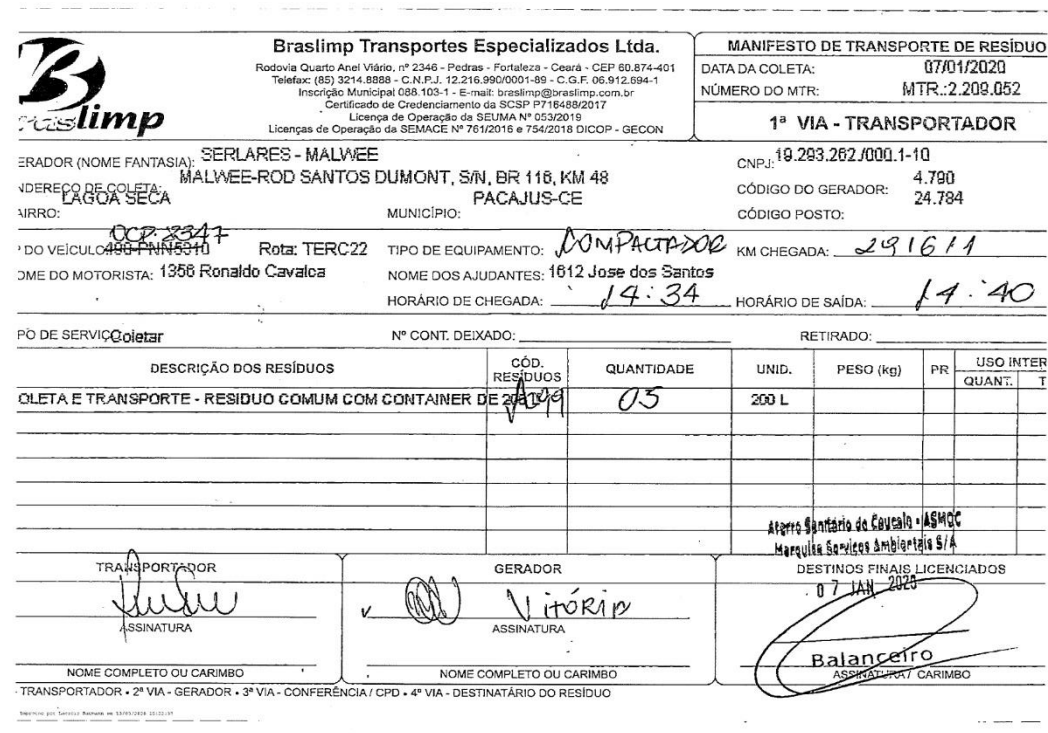 Braslimp
Braslimp Transportes Especializados Ltda.
Rodovia Quarto Anel Viário, nº 2346 - Pedras - Fortaleza - Ceará - CEP 60.874-401
Telefax: (85) 3214.8888 - C.N.P.J. 12.216.990/0001-89 - C.G.F. 06.912.694-1
Inscrição Municipal 088.103-1 - E-mail: braslimp@braslimp.com.br
Certificado de Credenciamento da SCSP P716488/2017
Licença de Operação da SEUMA Nº 053/2019
Licenças de Operação da SEMACE Nº 761/2016 e 754/2018 DICOP - GECON
MANIFESTO DE TRANSPORTE DE RESÍDUO
DATA DA COLETA: 07/01/2020
NÚMERO DO MTR: MTR.:2.209.052
1ª VIA - TRANSPORTADOR
ERADOR (NOME FANTASIA): SERLARES - MALWEE
CNPJ: 19.293.262./000.1-10
NDEREÇO DE COLETA: MALWEE-ROD SANTOS DUMONT, S/N, BR 116, KM 48
CÓDIGO DO GERADOR: 4.790
LAGOA SECA PACAJUS-CE 24.784
AIRRO: MUNICÍPIO: CÓDIGO POSTO:
OCP-2347
DO VEÍCULO 490-PNN5310 Rota: TERC22 TIPO DE EQUIPAMENTO: COMPACTADOR KM CHEGADA: 291611
OME DO MOTORISTA: 1356 Ronaldo Cavalca NOME DOS AJUDANTES: 1612 Jose dos Santos
HORÁRIO DE CHEGADA: 14:34 HORÁRIO DE SAÍDA: 14:40
PO DE SERVIÇO Coletar Nº CONT. DEIXADO: RETIRADO:
DESCRIÇÃO DOS RESÍDUOS CÓD. RESÍDUOS QUANTIDADE UNID. PESO (kg) PR USO INTER
QUANT. T
OLETA E TRANSPORTE - RESIDUO COMUM COM CONTAINER DE A099 05 200 L
Aterro Sanitário de Caucaia - ASMOC
Marquise Serviços Ambientais S/A
TRANSPORTADOR GERADOR DESTINOS FINAIS LICENCIADOS
07 JAN 2020
Vitória
ASSINATURA ASSINATURA
Balanceiro
NOME COMPLETO OU CARIMBO NOME COMPLETO OU CARIMBO ASSINATURA / CARIMBO
TRANSPORTADOR • 2ª VIA - GERADOR • 3ª VIA - CONFERÊNCIA / CPD • 4ª VIA - DESTINATÁRIO DO RESÍDUO